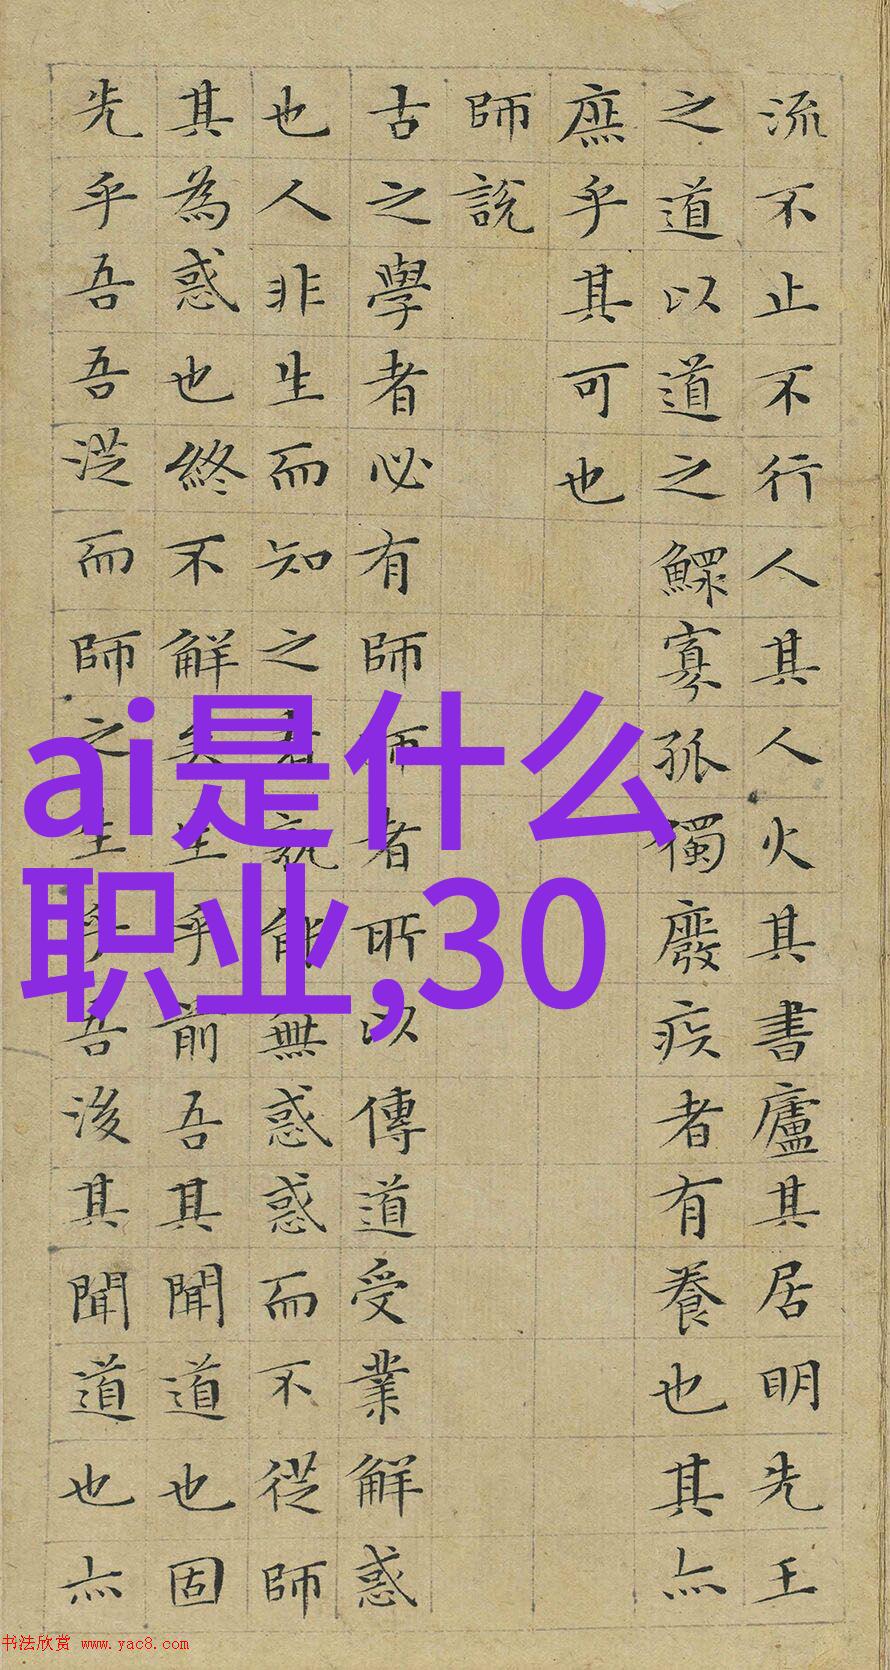 流不止不行人其人火其書廬其居明先王
之道以道之鰥寡孤獨廢疾者有養也其亦
庶乎其可也
師說
古之學者必有師師者所以傳道受業解惑
也人非生而知之者孰能無惑惑而不從師
其為惑也終不解矣生乎前吾其聞道也固
先乎吾吾從而師之生乎吾後其聞道也亦
ai是什么
职业,30
书法欣赏 www.yac8.com